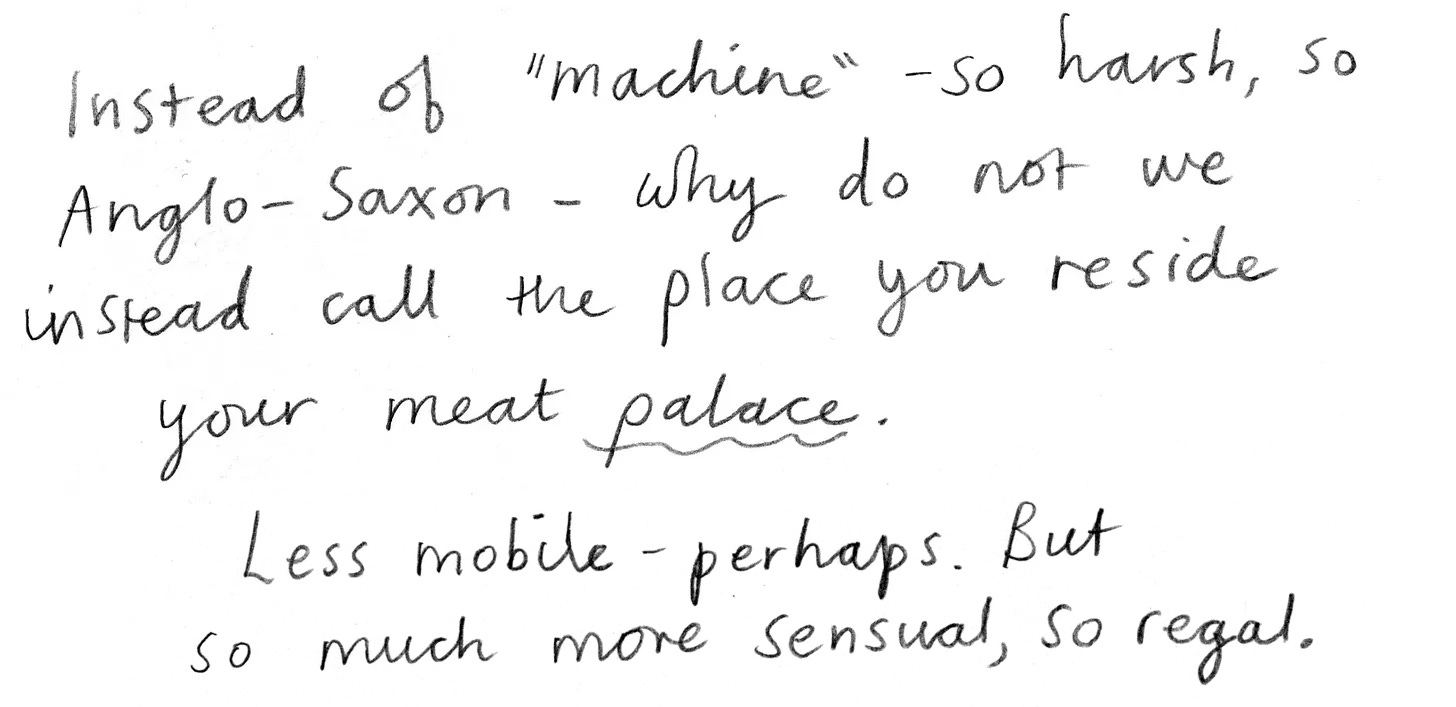 Instead of "machine" - so harsh, so
Anglo-Saxon - why do not we
instead call the place you reside
your meat palace.
Less mobile - perhaps. But
so much more sensual, so regal.